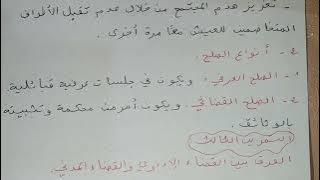 - تعزيز هدم المجتمع من خلال عدم تقبل الأطراف
المتخاصمين للعيش معا مرة أخرى.
٤- أنواع الصلح
١- الصلح العرفي: ويكون في جلسات عرفية قبائلية
٢- الصلح القضائي: ويكون أمام محكمة وتثبيته
بالوثائق.
التمرين الثالث
الفرق بين القضاء الإداري والقضاء المدني